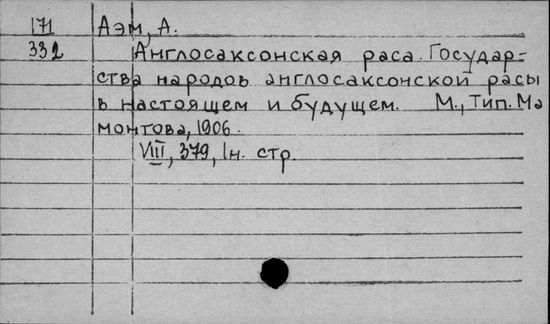 171 Аэм, А.
332 Англосаксонская раса. Государ-
ства народов англосаксонской расы
в настоящем и будущем. М., Тип. Ма
монтова, 1906.
VIII, 379, 1н. стр.